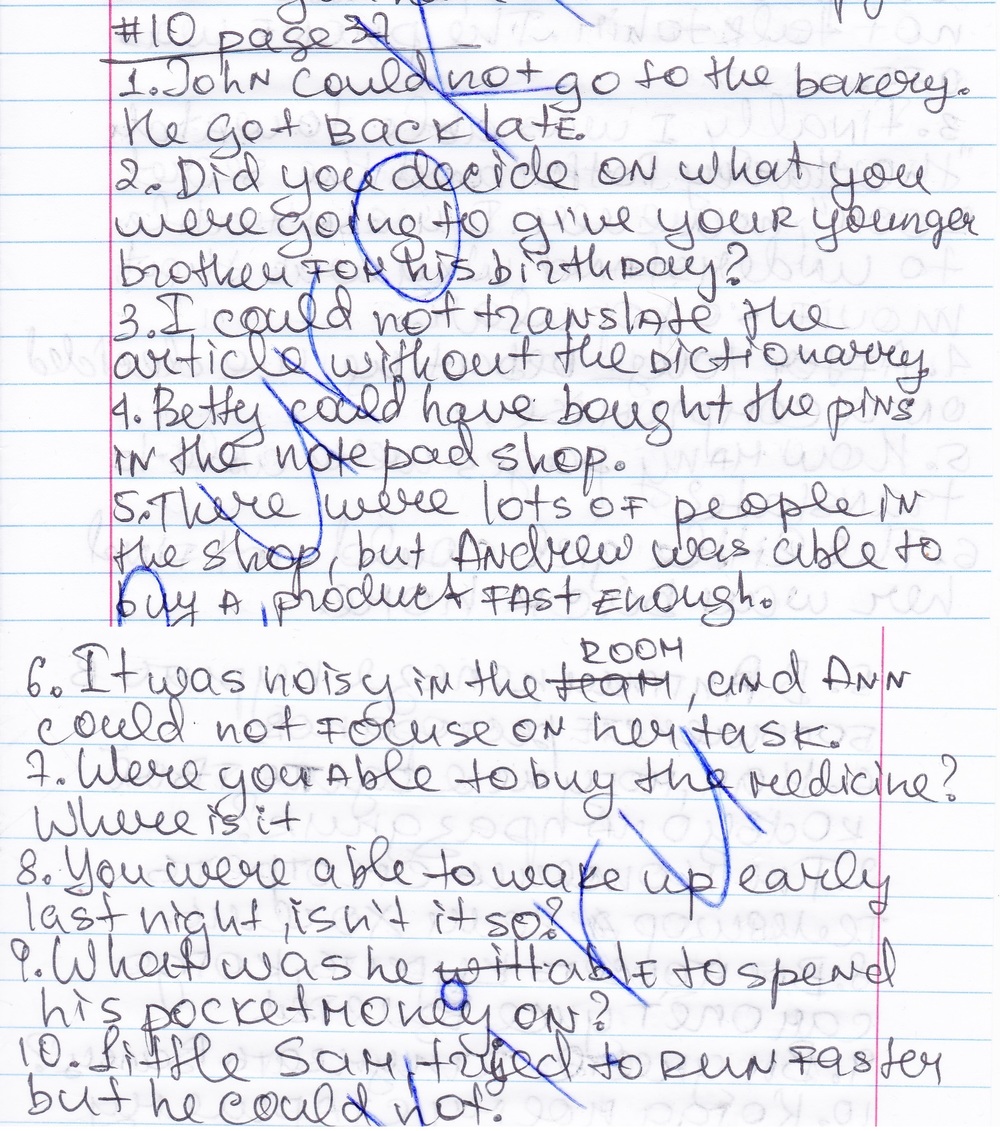 #10 page 37
1. John could not go to the bakery.
He got back late.
2. Did you decide on what you
were going to give your younger
brother for his birthday?
3. I could not translate the
article without the dictionarry
4. Betty could have bought the pins
in the notepad shop.
5. There were lots of people in
the shop, but Andrew was able to
buy a product fast enough.
room
6. It was noisy in the team, and Ann
could not focuse on her task.
7. Were you able to buy the medicine?
Where is it
8. You were able to wake up early
last night, isn't it so?
9. What was he will able to spend
his pocket money on?
10. Little Sam tryed to run faster
but he could not.